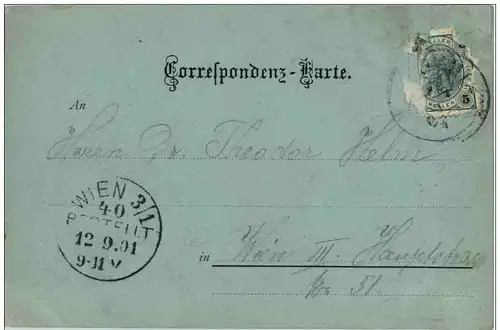 Correspondenz-Karte.
5
An
Herrn Dr. Theodor Helm
WIEN 3/1
40
BESTELLT
12.9.01
9-11 V
in Wien III. Hauptstrasse
No 51